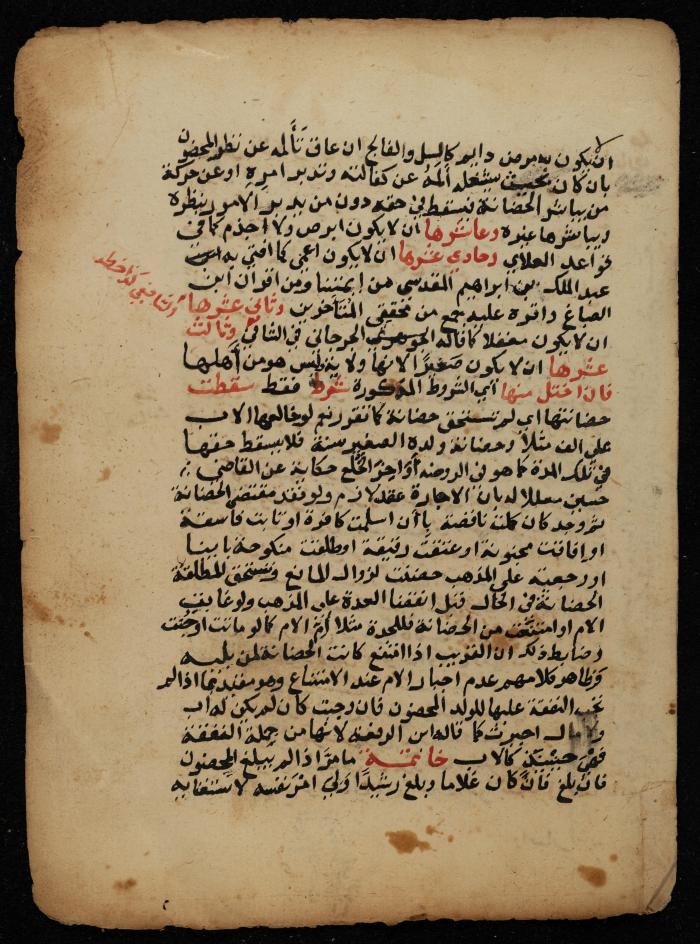 ان لا يكون به مرض دايم كالسل والفالج ان عاق تألمه عن نظر المحضون
بان كان بحيث يشغله ألمه عن كفالته وتدبر امره او عن حركة
من يباشر الحضانة فيسقط في حقه دون من يدبر الامور بنظره
ويباشرها غيره وعاشرها ان لا يكون ابرص ولا اجذم كما في
قواعد العلاي وحادي عشرها ان لا يكون اعمى كما افتى به
عبد الملك بن ابراهيم المقدسي من ايمتنا ومن اقران ابن
الصباغ واقره عليه جمع من محققي المتأخرين وثاني عشرها
ان لا يكون مغفلا كما قاله الجرجاني في الشافي وثالث
عشرها ان لا يكون صغيرا لانها ولاية ليس هو من أهلها
فان اختل منها أي الشروط المذكورة شرط فقط سقطت
حضانتها اي لم تستحق حضانة كما تقرر نعم لو خالعها الاب
على الف مثلا وحضانة ولده الصغير سنة فلا يسقط حقها
في تلك المدة كما هو في الروضه أواخر الخلع حكاية عن القاضي
حسين معللا له بان الاجارة عقد لازم ولو فقد مقتضى الحضانة
ثم وجد كان كملت ناقصة بأن اسلمت كافرة او تابت فاسقة
او افاقت مجنونة او عتقت رقيقة او طلقت منكوحة باينا
او رجعية على المذهب حضنت لزوال المانع وتستحق المطلقة
الحضانة في الحال قبل انقضا العدة على المذهب ولو غابت
الام او امتنعت من الحضانة فللجدة مثلا أم الام كما لو ماتت او جنت
وضابط ذلك ان القريب اذا امتنع كانت الحضانة لمن يليه
وظاهر كلامهم عدم اجبار الام عند الامتناع وهو مقيد بما اذا لم
تجب النفقة عليها للولد المحضون فان وجبت كان لم يكن له اب
ولا مال اجبرت كما قاله ابن الرفعة لانها من جملة النفقة
فهي حينئذ كالاب خاتمة ما مر اذا لم يبلغ المحضون
فان بلغ فان كان غلاما وبلغ رشيدا ولي امر نفسه لاستغنايه